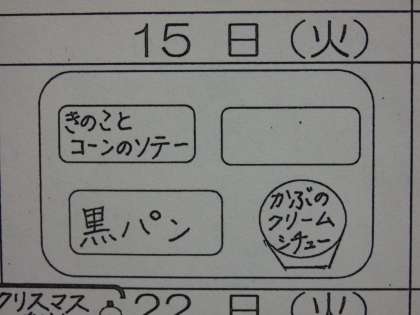 15 日 (火)
きのこと
コーンのソテー
黒パン
かぶの
クリーム
シチュー
クリスマス
22 日 (火)